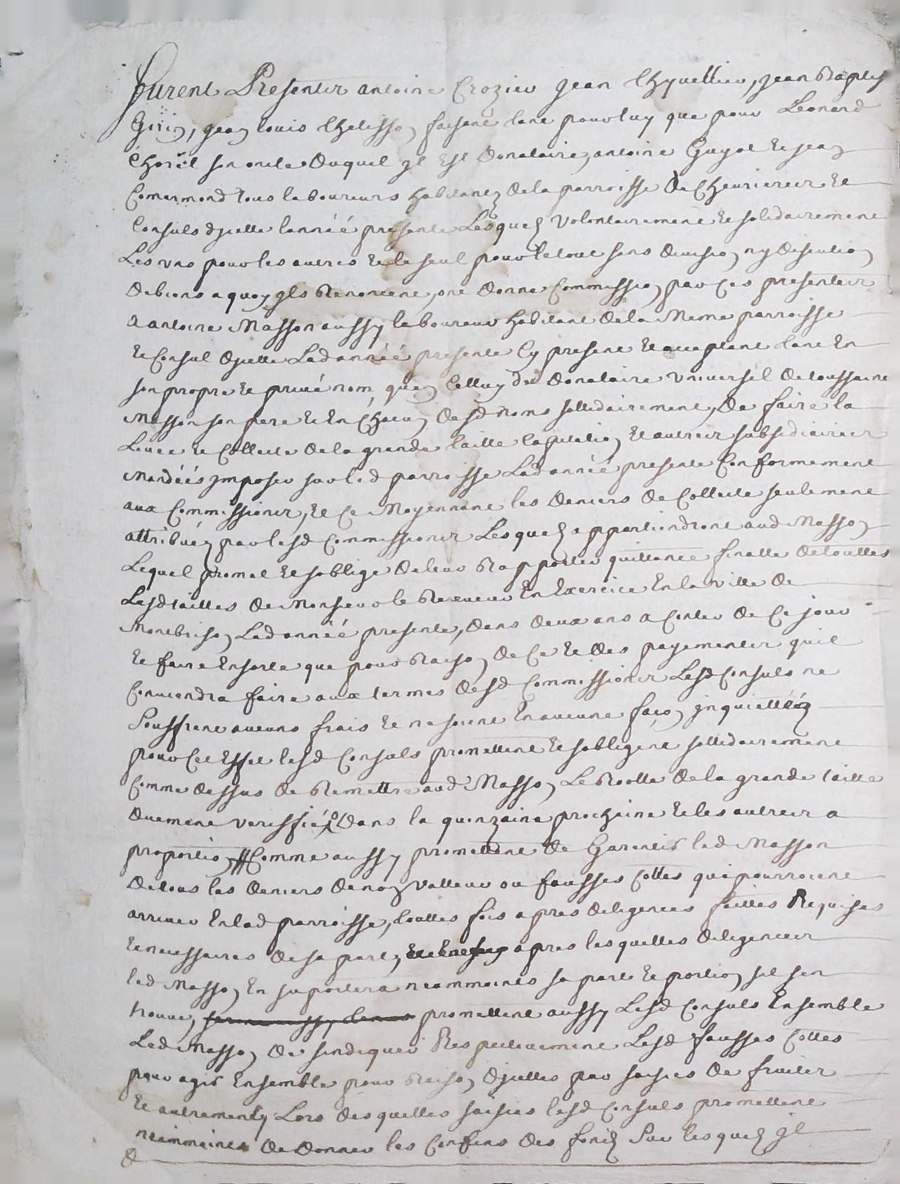 Furent Presentz antoine Crozier Jean Thyvellier, Jean Baptiste
Girin, Jean louis Thelisson faisant tant pour luy que pour Leonard
son oncle duquel il est donataire, antoine Guyot et Jean
Comarmond tous laboureurs habitantz de la parroisse de Chevrieres et
Consuls dyselle lannéé presente Lesquelz volontairement et solidairement
Les uns pour les autres et le seul pour le tout sans division ny discution
de biens a quoy yls Renoncent, ont donné Commission par Ces presentes
a antoine Masson aussy laboureur habitant de la Meme parroisse
et Consul dyselle Lad annéé presente Cy present et acceptant tant En
son propre et privé nom, que Celluy de donataire universel de toussaint
Masson son pere et En Chacun desd noms sollidairement, de faire la
Levéé et Collecte de la grande taille Capitation et autres subsidiaires
Mandéés Imposer sur lad parroisse Lad annéé presente Conformement
aux Commissions, et Ce Moyennant les deniers de Collecte seulement
attribués par lesd Commissions Lesquelz appartiendront aud Masson
Lequel promet et soblige de leur Rapporter quittance finalle de touttes
Lesd tailles de Monsieur le Receveur En Exercice En la ville de
Montbrison Lad annéé presente, dans deux ans a Conter de Ce jour
et faire Ensorte que pour Raison de Ce et des payements quil
Conviendra faire aux termes desd Commissions Lesd Consuls ne
Souffrent aucuns frais et ne soient En aucune façon jnquiettéz
pour Cet Effet Lesd Consuls promettent et sobligent sollidairement
Comme dessus de Remettre aud Masson Le Rolle de la grande taille
duement veriffié, dans la quinzaine prochaine et les autres a
proportion, Comme aussy promettent de Garentir led Masson
de tous les deniers de non valleur ou fausses Cottes qui pourroient
arriver En lad parroisse, touttes fois apres diligences faittes Requises
et necessaires de sa part, apres lesquelles diligences
led Masson En suportera neammoins sa part et portion sil sen
trouve, promettent aussy Lesd Consuls Ensemble
Led Masson de sindiquer Respectivement Lesd fausses Cottes
pour agir Ensemble pour Raison dyselles par saisies de fruits
et autrement, Lors desquelles saisies lesd Consuls promettent
neammoins de donner les Confins des fondz Sur lesquelz yl